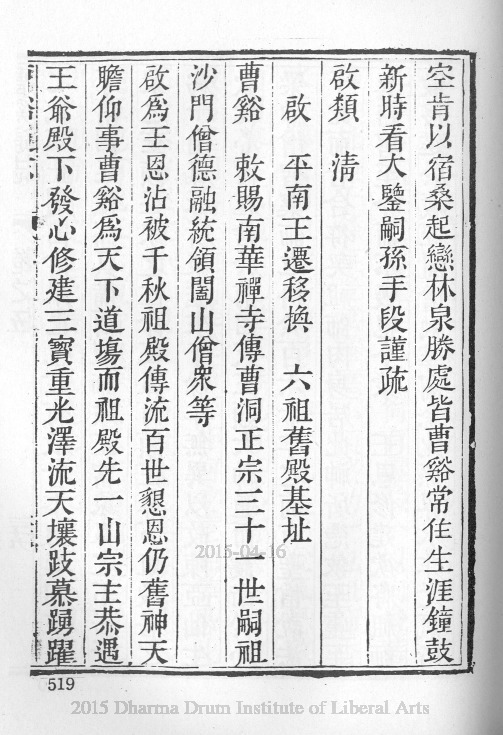 空肯以宿桑起戀林泉勝處皆曹谿常住生涯鐘鼓
新時看大鑒嗣孫手段謹疏
啟類　清
　啟　平南王遷移換　六祖舊殿基址
曹谿　敕賜南華禪寺傳曹洞正宗三十一世嗣祖
沙門僧德融統領闔山僧衆等
啟爲王恩沾被千秋祖殿傳流百世懇恩仍舊神天
瞻仰事曹谿爲天下道塲而祖殿先一山宗主恭遇
王爺殿下發心修建三寶重光澤流天壤跂慕踴躍
519
2015-04-16
2015 Dharma Drum Institute of Liberal Arts